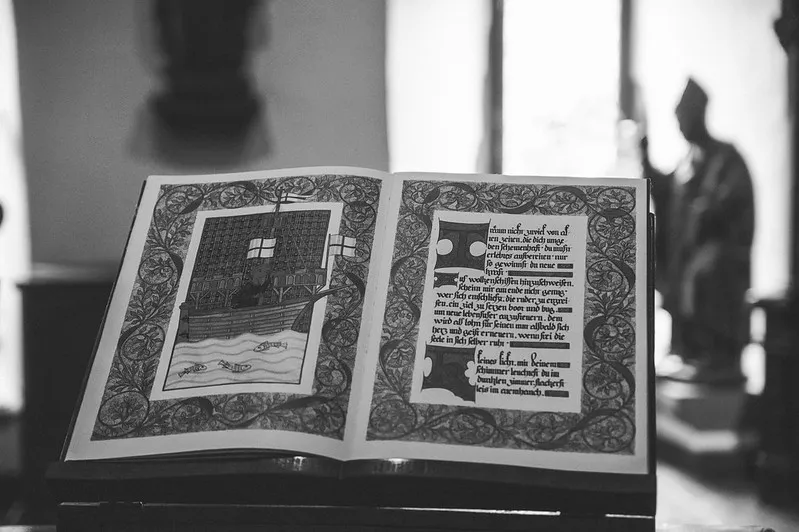 räum nicht zuviel von al-
ten zeiten, die dich umge-
ben schemenhaft · du mußt
erlebnis aufbereiten · nur
so gewinnst du neue
kraft ·
auf wolkenschiffen hinzuschweifen,
scheint mir am ende nicht genug ·
wer sich entschließt, die ruder zu ergrei-
fen, ein ziel zu setzen boot und bug,
um neue lebensufer anzusteuern, dem
wird als lohn für seinen mut alsbald sich
herz und geist erneuern, wenn frei die
seele in sich selber ruht ·
kleines licht, mit deinem
schimmer leuchtest du im
dunklen zimmer, flackerst
leis im